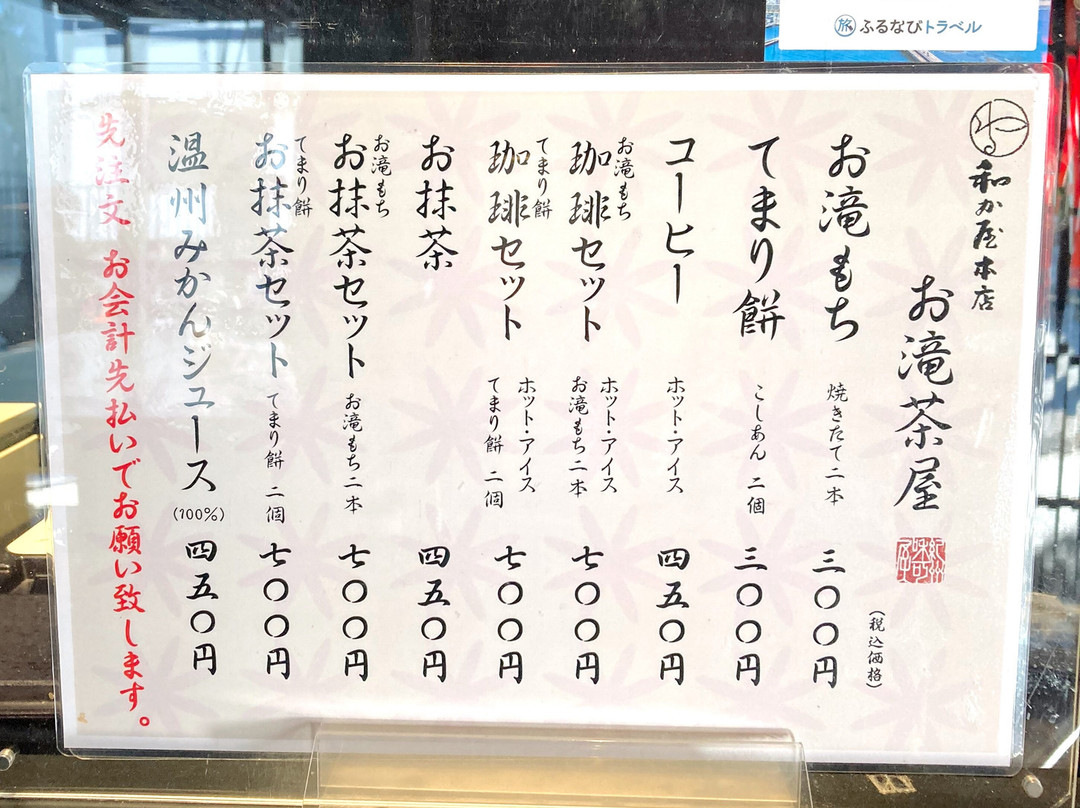 旅 ふるなびトラベル
和か屋本店
お滝茶屋
(税込価格)
お滝もち 焼きたて二本 三〇〇円
てまり餅 こしあん 二個 三〇〇円
コーヒー ホット・アイス 四五〇円
お滝もち
珈琲セット ホット・アイス
お滝もち二本 七〇〇円
てまり餅
珈琲セット ホット・アイス
てまり餅 二個 七〇〇円
お抹茶 四五〇円
お滝もち
お抹茶セット お滝もち二本 七〇〇円
てまり餅
お抹茶セット てまり餅 二個 七〇〇円
温州みかんジュース (100%) 四五〇円
先注文 お会計先払いでお願い致します。